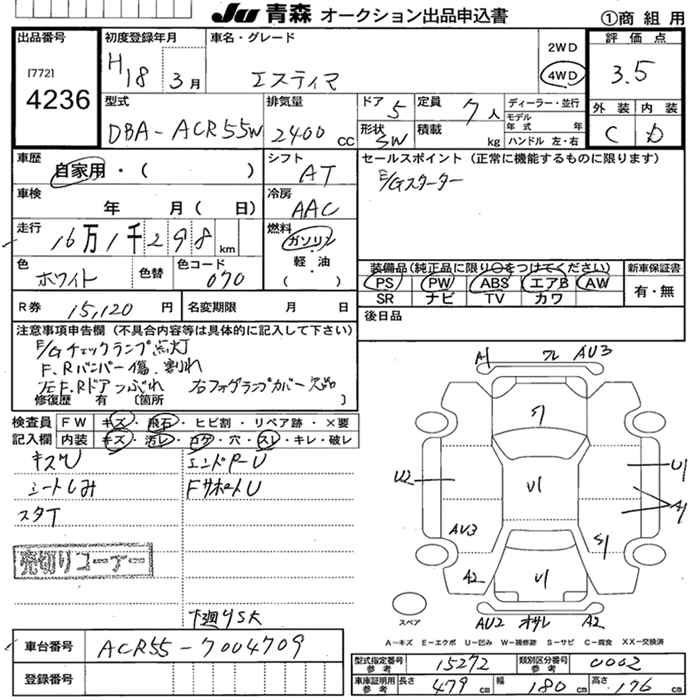 JU 青森 オークション出品申込書 ①商 組 用
出品番号 初度登録年月 車名・グレード 評価点
[772] H18 3月 エスティマ 2WD 4WD 3.5
4236 型式 排気量 ドア 5 定員 7人 ディーラー・並行 外装 内装
DBA-ACR55W 2400 CC 形状 SW 積載 kg モデル年式 年式 ハンドル 左・右 C D
車歴 シフト セールスポイント (正常に機能するものに限ります)
自家用・( ) AT E/Gスターター
車検 年 月( 日) 冷房 AAC
走行 16万1千298km 燃料 ガソリン
色 色替 色コード 軽・油 装備品(純正品に限り○をつけてください) 新車保証書
ホワイト 070 ( ) PS PW ABS エアB AW 有・無
SR ナビ TV カワ
R券 15,120 円 名変期限 月 日 後日品
注意事項申告欄 (不具合内容等は具体的に記入して下さい)
E/Gチェックランプ点灯
F、Rバンパー傷、割れ
左F、Rドアつぶれ 右フォグランプカバー欠品
修復歴 有 〔箇所 〕
検査員 FW キズ・飛石・ヒビ割・リペア跡・×要
記入欄 内装 キズ・汚レ・コゲ・穴・スレ・キレ・破レ
キズU エンドPーU
シートしみ FサポートU
スタT
売切りコーナー
下廻りSK
A1 フレ AU3
S1
U2 U1 U1
A1
AU3 S1
A2 U1
スペア AU2 オサレ A2
A－キズ E－エクボ U－凹み W－補修跡 S－サビ C－腐食 XX－交換済
車台番号 ACR55-7004709 型式指定番号 参考 15272 類別区分番号 参考 0002
登録番号 車庫証明用 参考 長さ 479 cm 幅 180 cm 高さ 176 cm